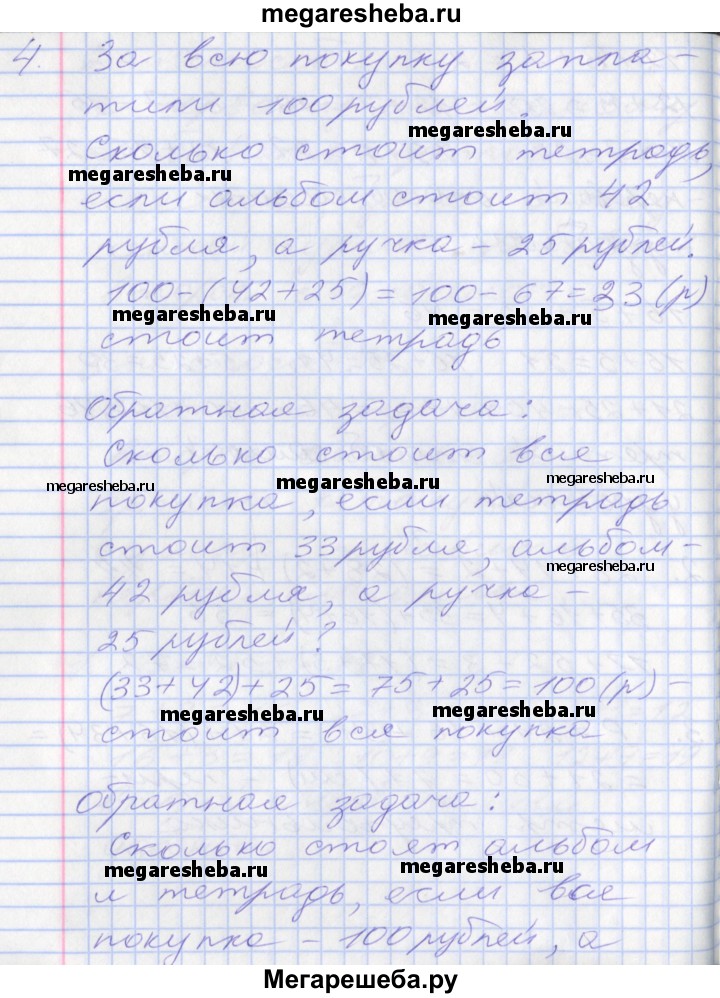 megaresheba.ru
4. За всю покупку запла-
тили 100 рублей.
megaresheba.ru
Сколько стоит тетрадь,
megaresheba.ru
если альбом стоит 42
рубля, а ручка - 25 рублей.
100-(42+25)=100-67=33(р)
megaresheba.ru megaresheba.ru
стоит тетрадь
Обратная задача:
Сколько стоит вся
megaresheba.ru megaresheba.ru megaresheba.ru
покупка, если тетрадь
стоит 33 рубля, альбом-
megaresheba.ru
42 рубля, а ручка -
25 рублей?
(33+42)+25=75+25=100(р)-
megaresheba.ru megaresheba.ru
стоит вся покупка
Обратная задача:
Сколько стоят альбом
megaresheba.ru megaresheba.ru
и тетрадь, если вся
покупка - 100 рублей, а
Мегарешеба.ру